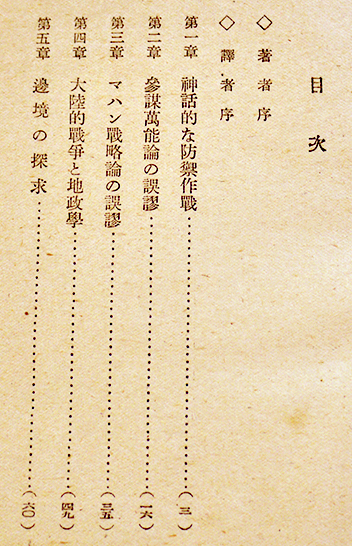 目次
◇ 著者序
◇ 譯者序
第一章 神話的な防禦作戰……………………………(三)
第二章 參謀萬能論の誤謬……………………………(一六)
第三章 マハン戰略論の誤謬……………………………(三五)
第四章 大陸的戰爭と地政學……………………………(四九)
第五章 邊境の探求……………………………(六〇)